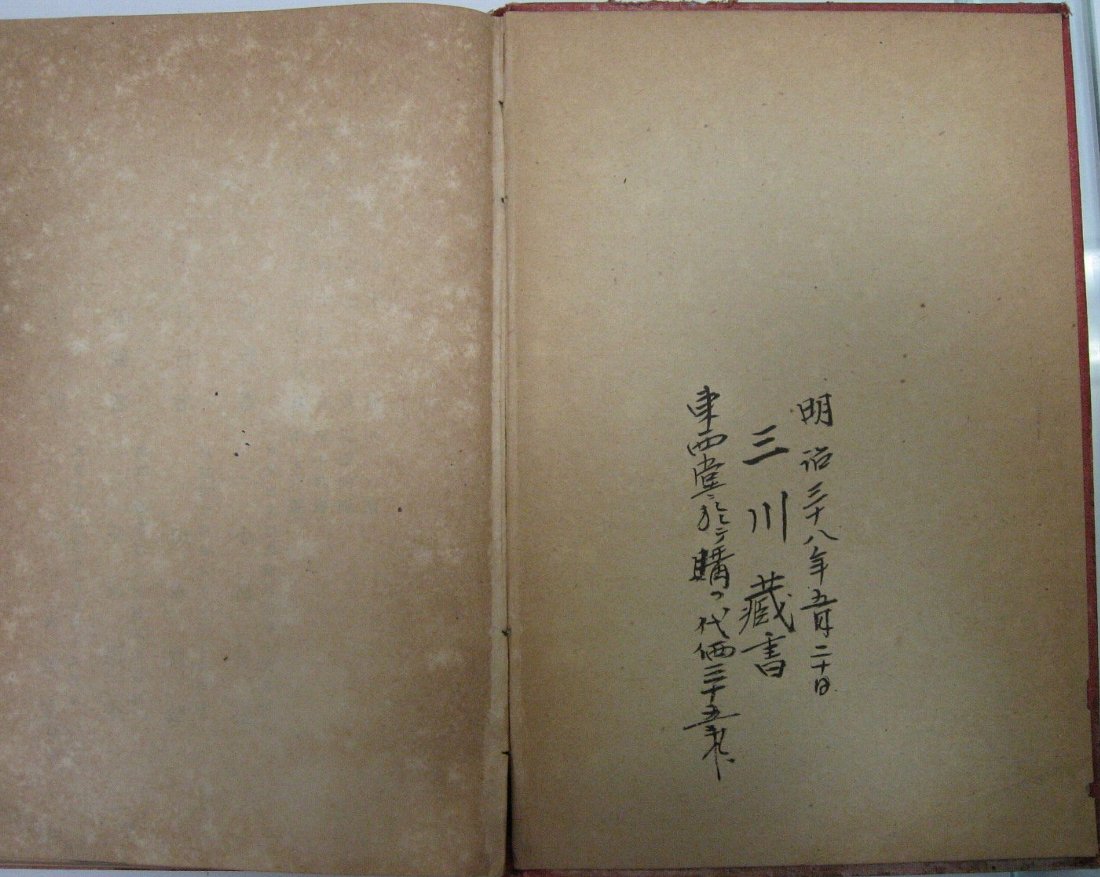 明治三十八年五月二十日
三川蔵書
東西堂ニ於テ購フ代価三十五